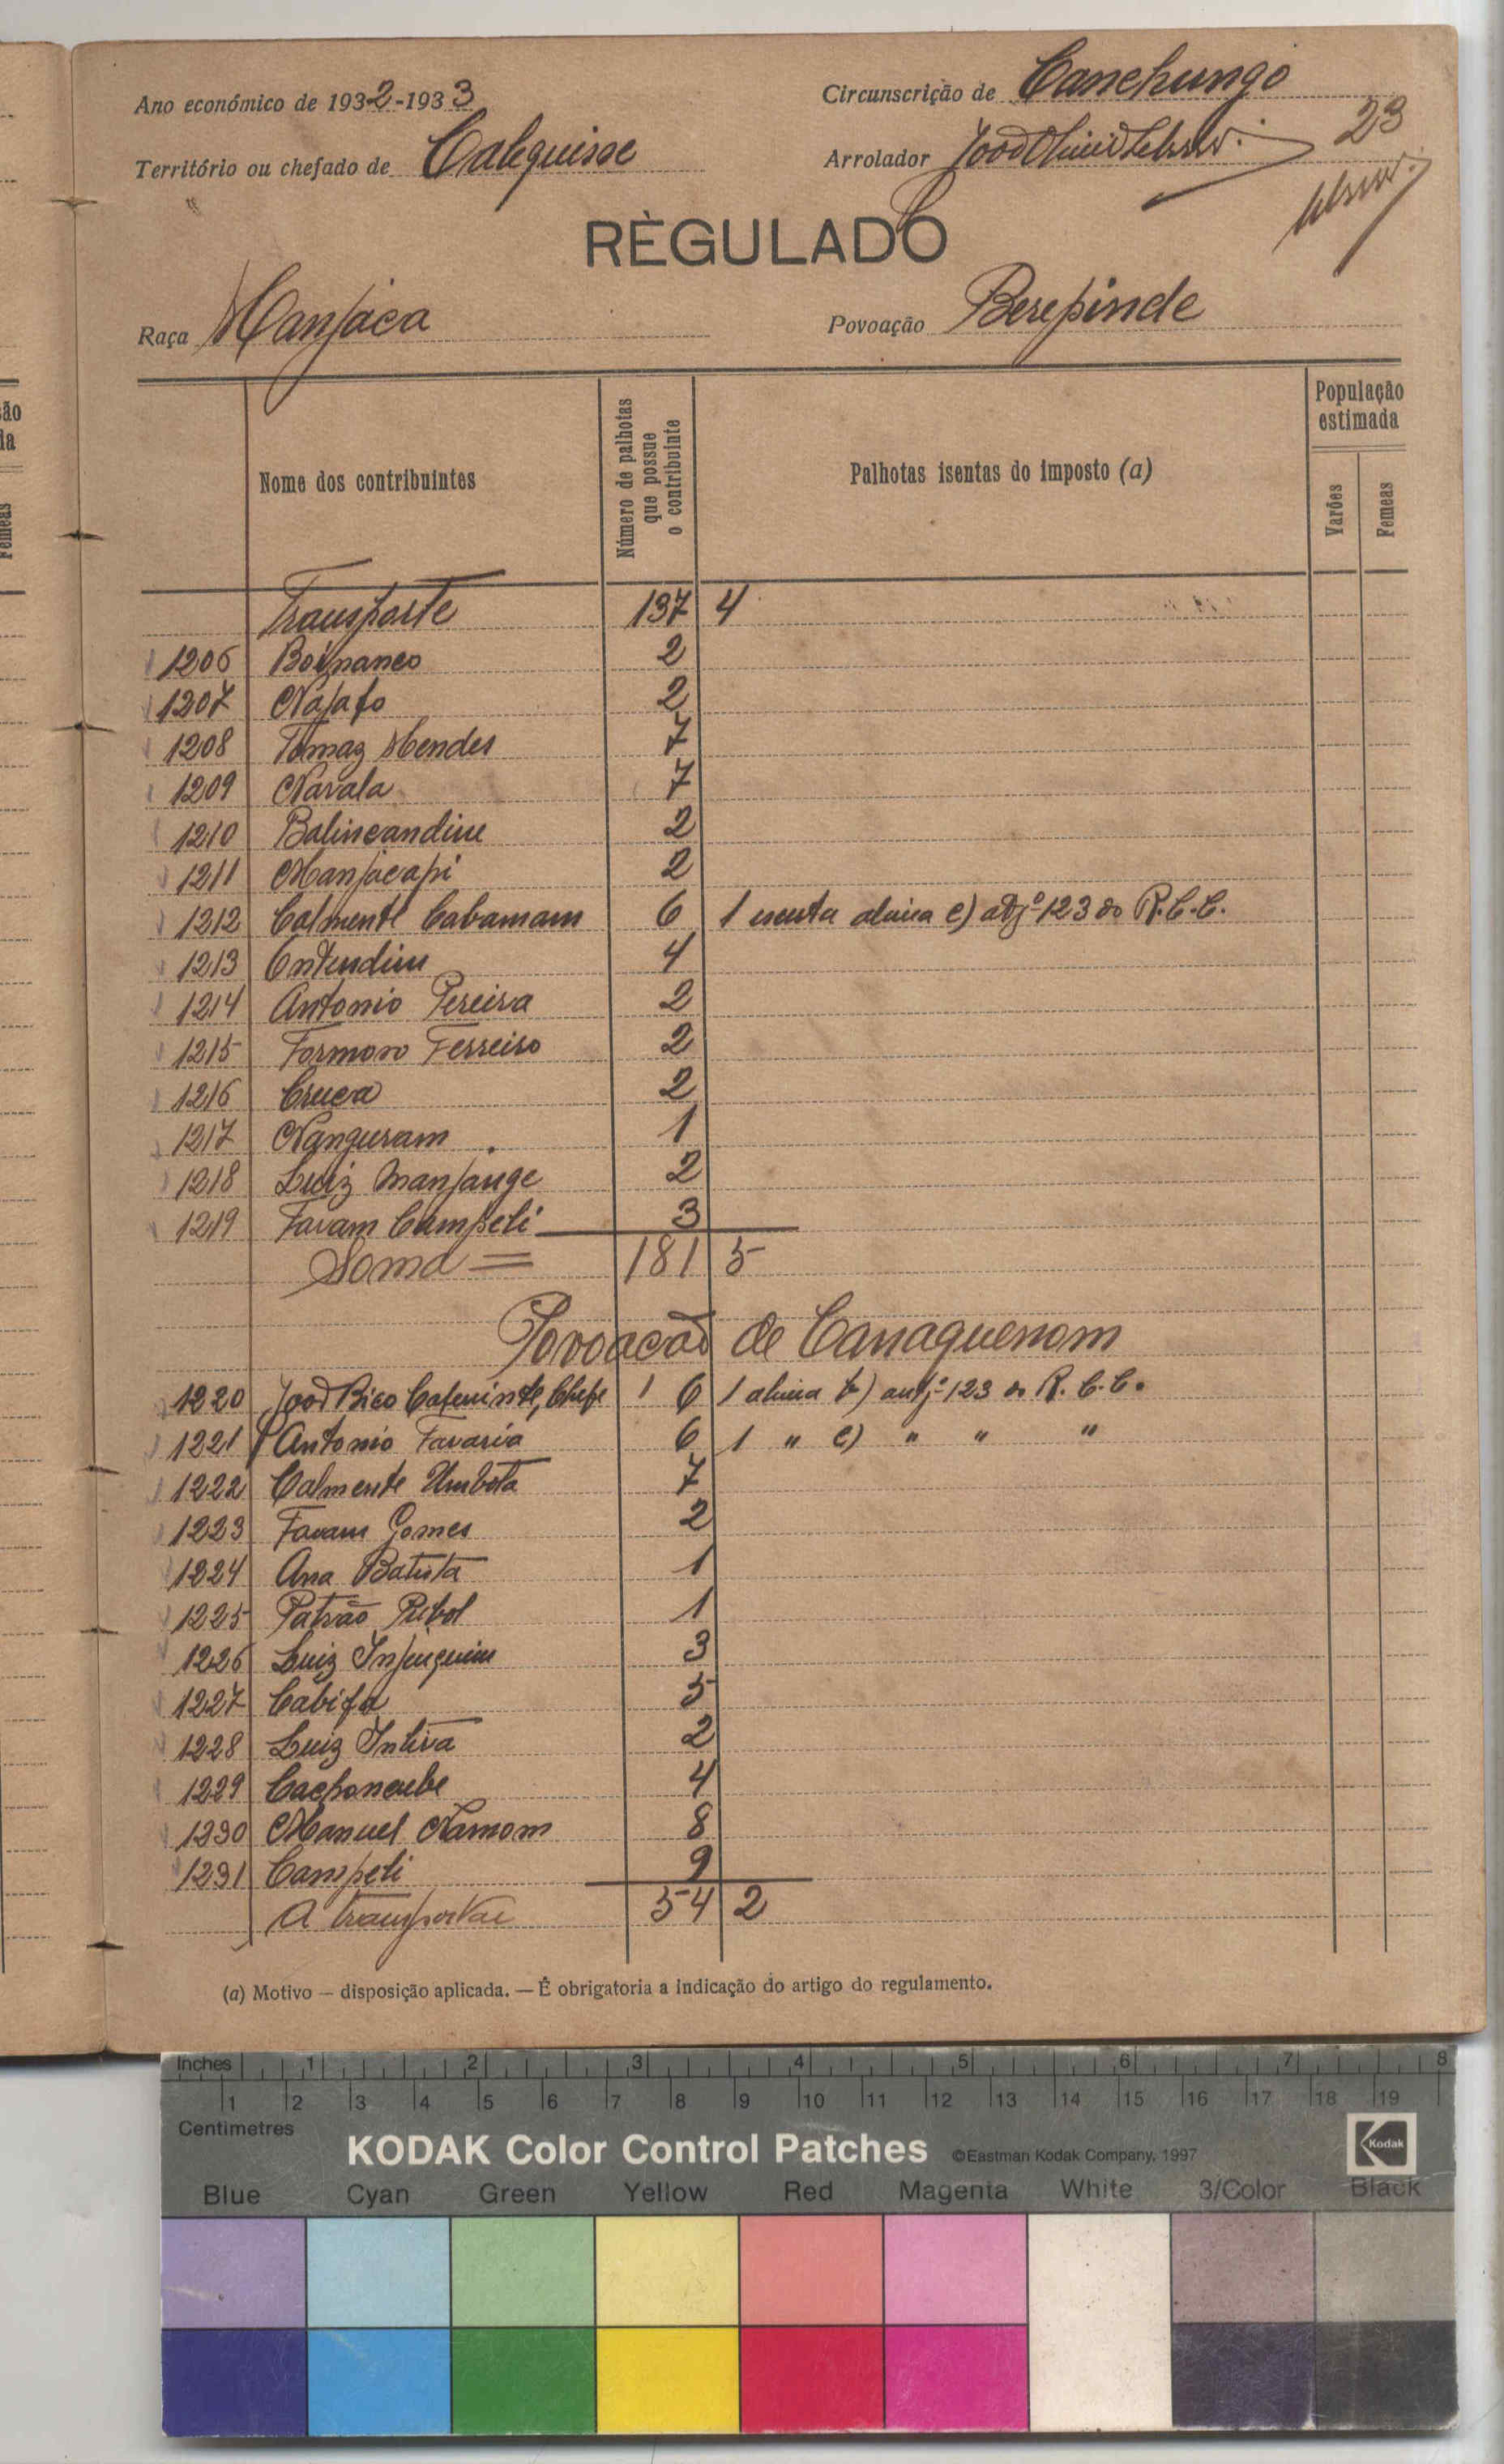 Ano económico de 1932-1933
Circunscrição de Canchungo
Território ou chefado de Calequisse
Arrolador
23
RÈGULADO
Raça Manjaca
Povoação Berepinde
Nome dos contribuintes
Número de palhotas que possue o contribuinte
Palhotas isentas do imposto (a)
População estimada
Varões
Femeas
Transporte 137 4
1206 Boiznanco 2
1207 Najafo 2
1208 Tomaz Mendes 7
1209 Navala 7
1210 Balincandim 2
1211 Manjacapi 2
1212 Calmente Cabamam 6 1 isenta alinea c) artº 123 do R.C.C.
1213 Entendim 4
1214 Antonio Pereira 2
1215 Formoso Ferreiro 2
1216 Cruca 2
1217 Nanguram 1
1218 Luiz Manjange 2
1219 Favam Campeli 3
Soma = 181 5
Povoacão de Canaquenom
1220 João Bico Cafeninte, Chefe 1 6 1 alinea b) artº 123 do R.C.C.
1221 Antonio Favaria 6 1 " c) " " "
1222 Calmente Umbota 7
1223 Favam Gomes 2
1224 Ana Batista 1
1225 Patrão Pribol 1
1226 Luiz Injenquim 3
1227 Cabifa 5
1228 Luiz Intiva 2
1229 Cachoncube 4
1230 Manuel Namom 8
1231 Campeli 9
A transportar 54 2
(a) Motivo — disposição aplicada. — É obrigatoria a indicação do artigo do regulamento.
ão
la
Femeas
Inches 1 2 3 4 5 6 7 8
1 2 3 4 5 6 7 8 9 10 11 12 13 14 15 16 17 18 19
Centimetres
KODAK Color Control Patches ©Eastman Kodak Company, 1997 Kodak
Blue Cyan Green Yellow Red Magenta White 3/Color Black